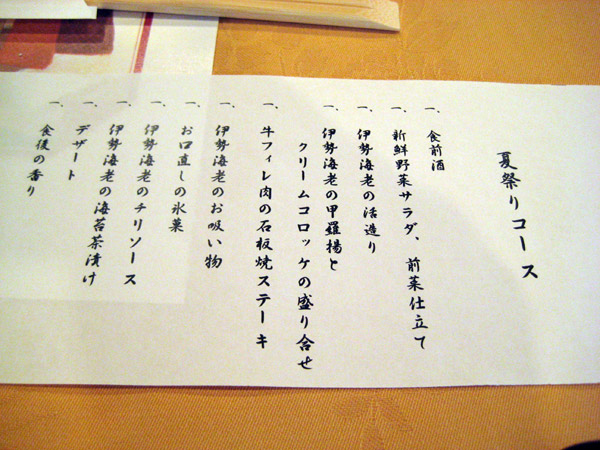 夏祭りコース
一、食前酒
一、新鮮野菜サラダ、前菜仕立て
一、伊勢海老の活造り
一、伊勢海老の甲羅揚と
クリームコロッケの盛り合せ
一、牛フィレ肉の石板焼ステーキ
一、伊勢海老のお吸い物
一、お口直しの氷菓
一、伊勢海老のチリソース
一、伊勢海老の海苔茶漬け
一、デザート
一、食後の香り